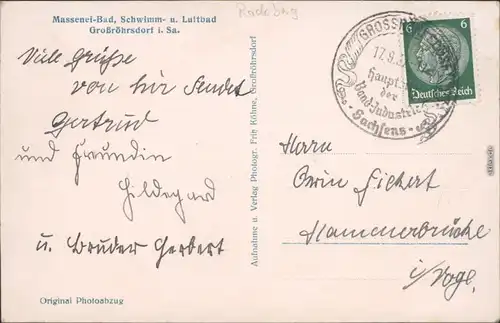 Massenei-Bad, Schwimm- u. Luftbad
Großröhrsdorf i. Sa.
Radeberg
Viele Grüße
von hier sendet
Gertrud
und Freundin
Hildegard
u. Bruder Herbert
Original Photoabzug
Aufnahme u. Verlag Photogr. Fritz Röhme, Großröhrsdorf
17.9.3
Haupt
der
Band-Industrie
Sachsens
6
6
Deutsches Reich
Herrn
Erwin Fickert
Hammerbrücke
i/Vogtl.